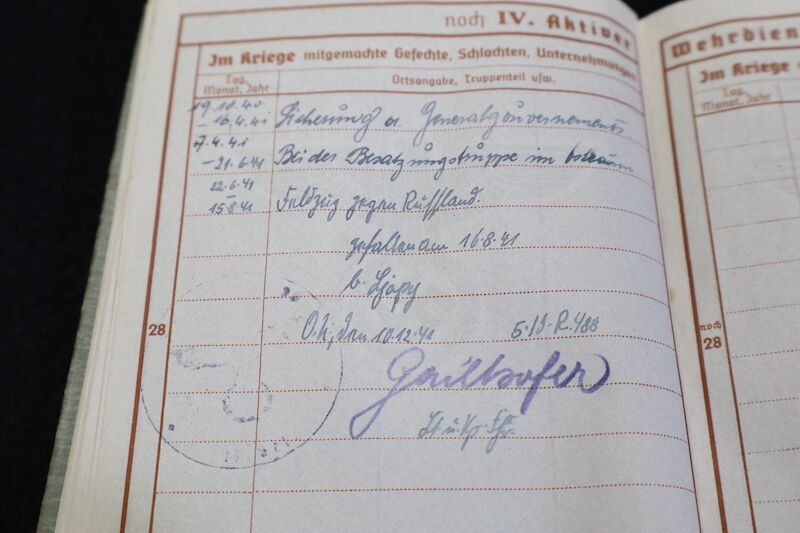 noch IV. Aktiver
Im Kriege mitgemachte Gefechte, Schlachten, Unternehmungen
Tag,
Monat, Jahr
Ortsangabe, Truppenteil usw.
19.10.40
- 16.4.41 Sicherung d. Generalgouvernements.
7.4.41
- 21.6.41 Bei der Besatzungstruppe im
22.6.41
-
15.8.41 Feldzug gegen Russland.
gefallen am 16.8.41
b.
O.U., den 10.12.41
488
28
Lt. u. Kp. Fhr.
Wehrdien
Im Kriege
Tag,
Monat, Jahr
noch
28